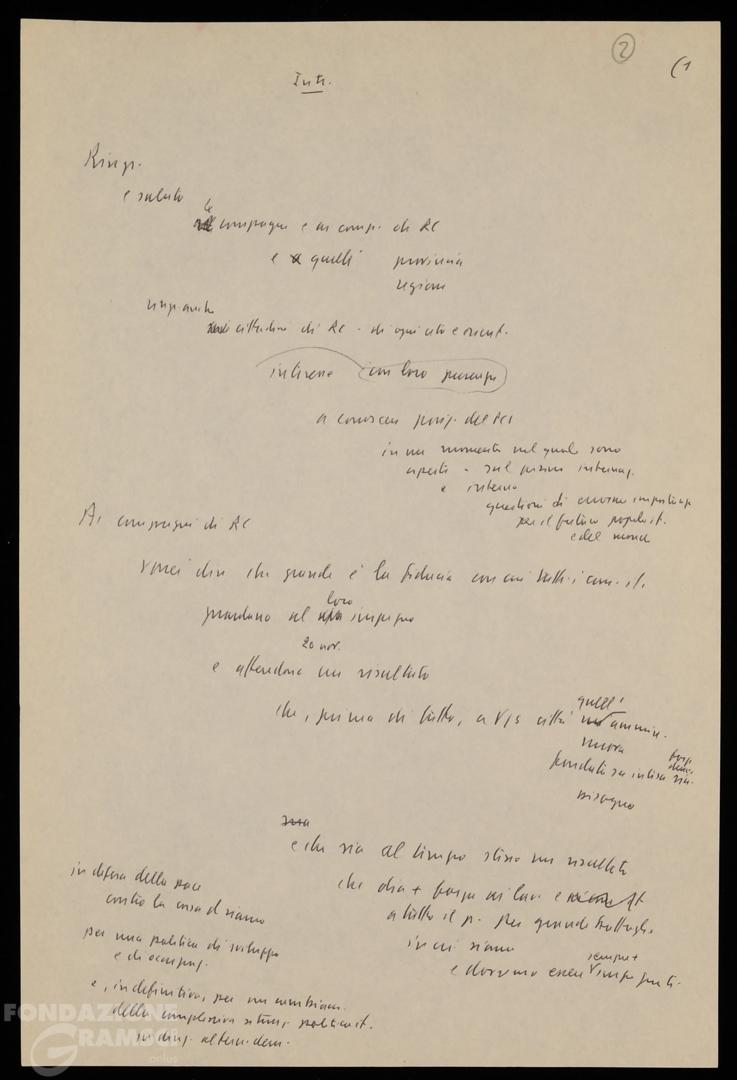 2
(1
Intr.
Ringr.
e saluto
le
compagne e ai comp. di RC
e a quelli provincia
regione
ringr. anche
cittadini di RC - di ogni ceto e orient.
interesse con loro presenza
a conoscere posiz. del PCI
in un momento nel quale sono
aperte - sul piano internaz.
e interno
questioni di enorme importanza
per il futuro popolo it.
e del mondo
Ai compagni di RC
vorrei dire che grande è la fiducia con cui tutti i com. it.
guardano al loro impegno
20 nov.
e attendono un risultato
che, prima di tutto, a Vs città quell' ammin.
nuova
fondata su intesa forze dem.
bisogno
e che sia al tempo stesso un risultato
che dia + forza ai lav. e
a tutto il p. per grandi battaglie
in cui siamo
e dovremo essere sempre + impegnati.
in difesa della pace
contro la corsa al riarmo
per una politica di sviluppo
e di occupaz.
e, in definitiva, per un cambiam.
della complessiva situaz. politica it.
in direz. altern. dem.
FONDAZIONE
GRAMSCI
onlus